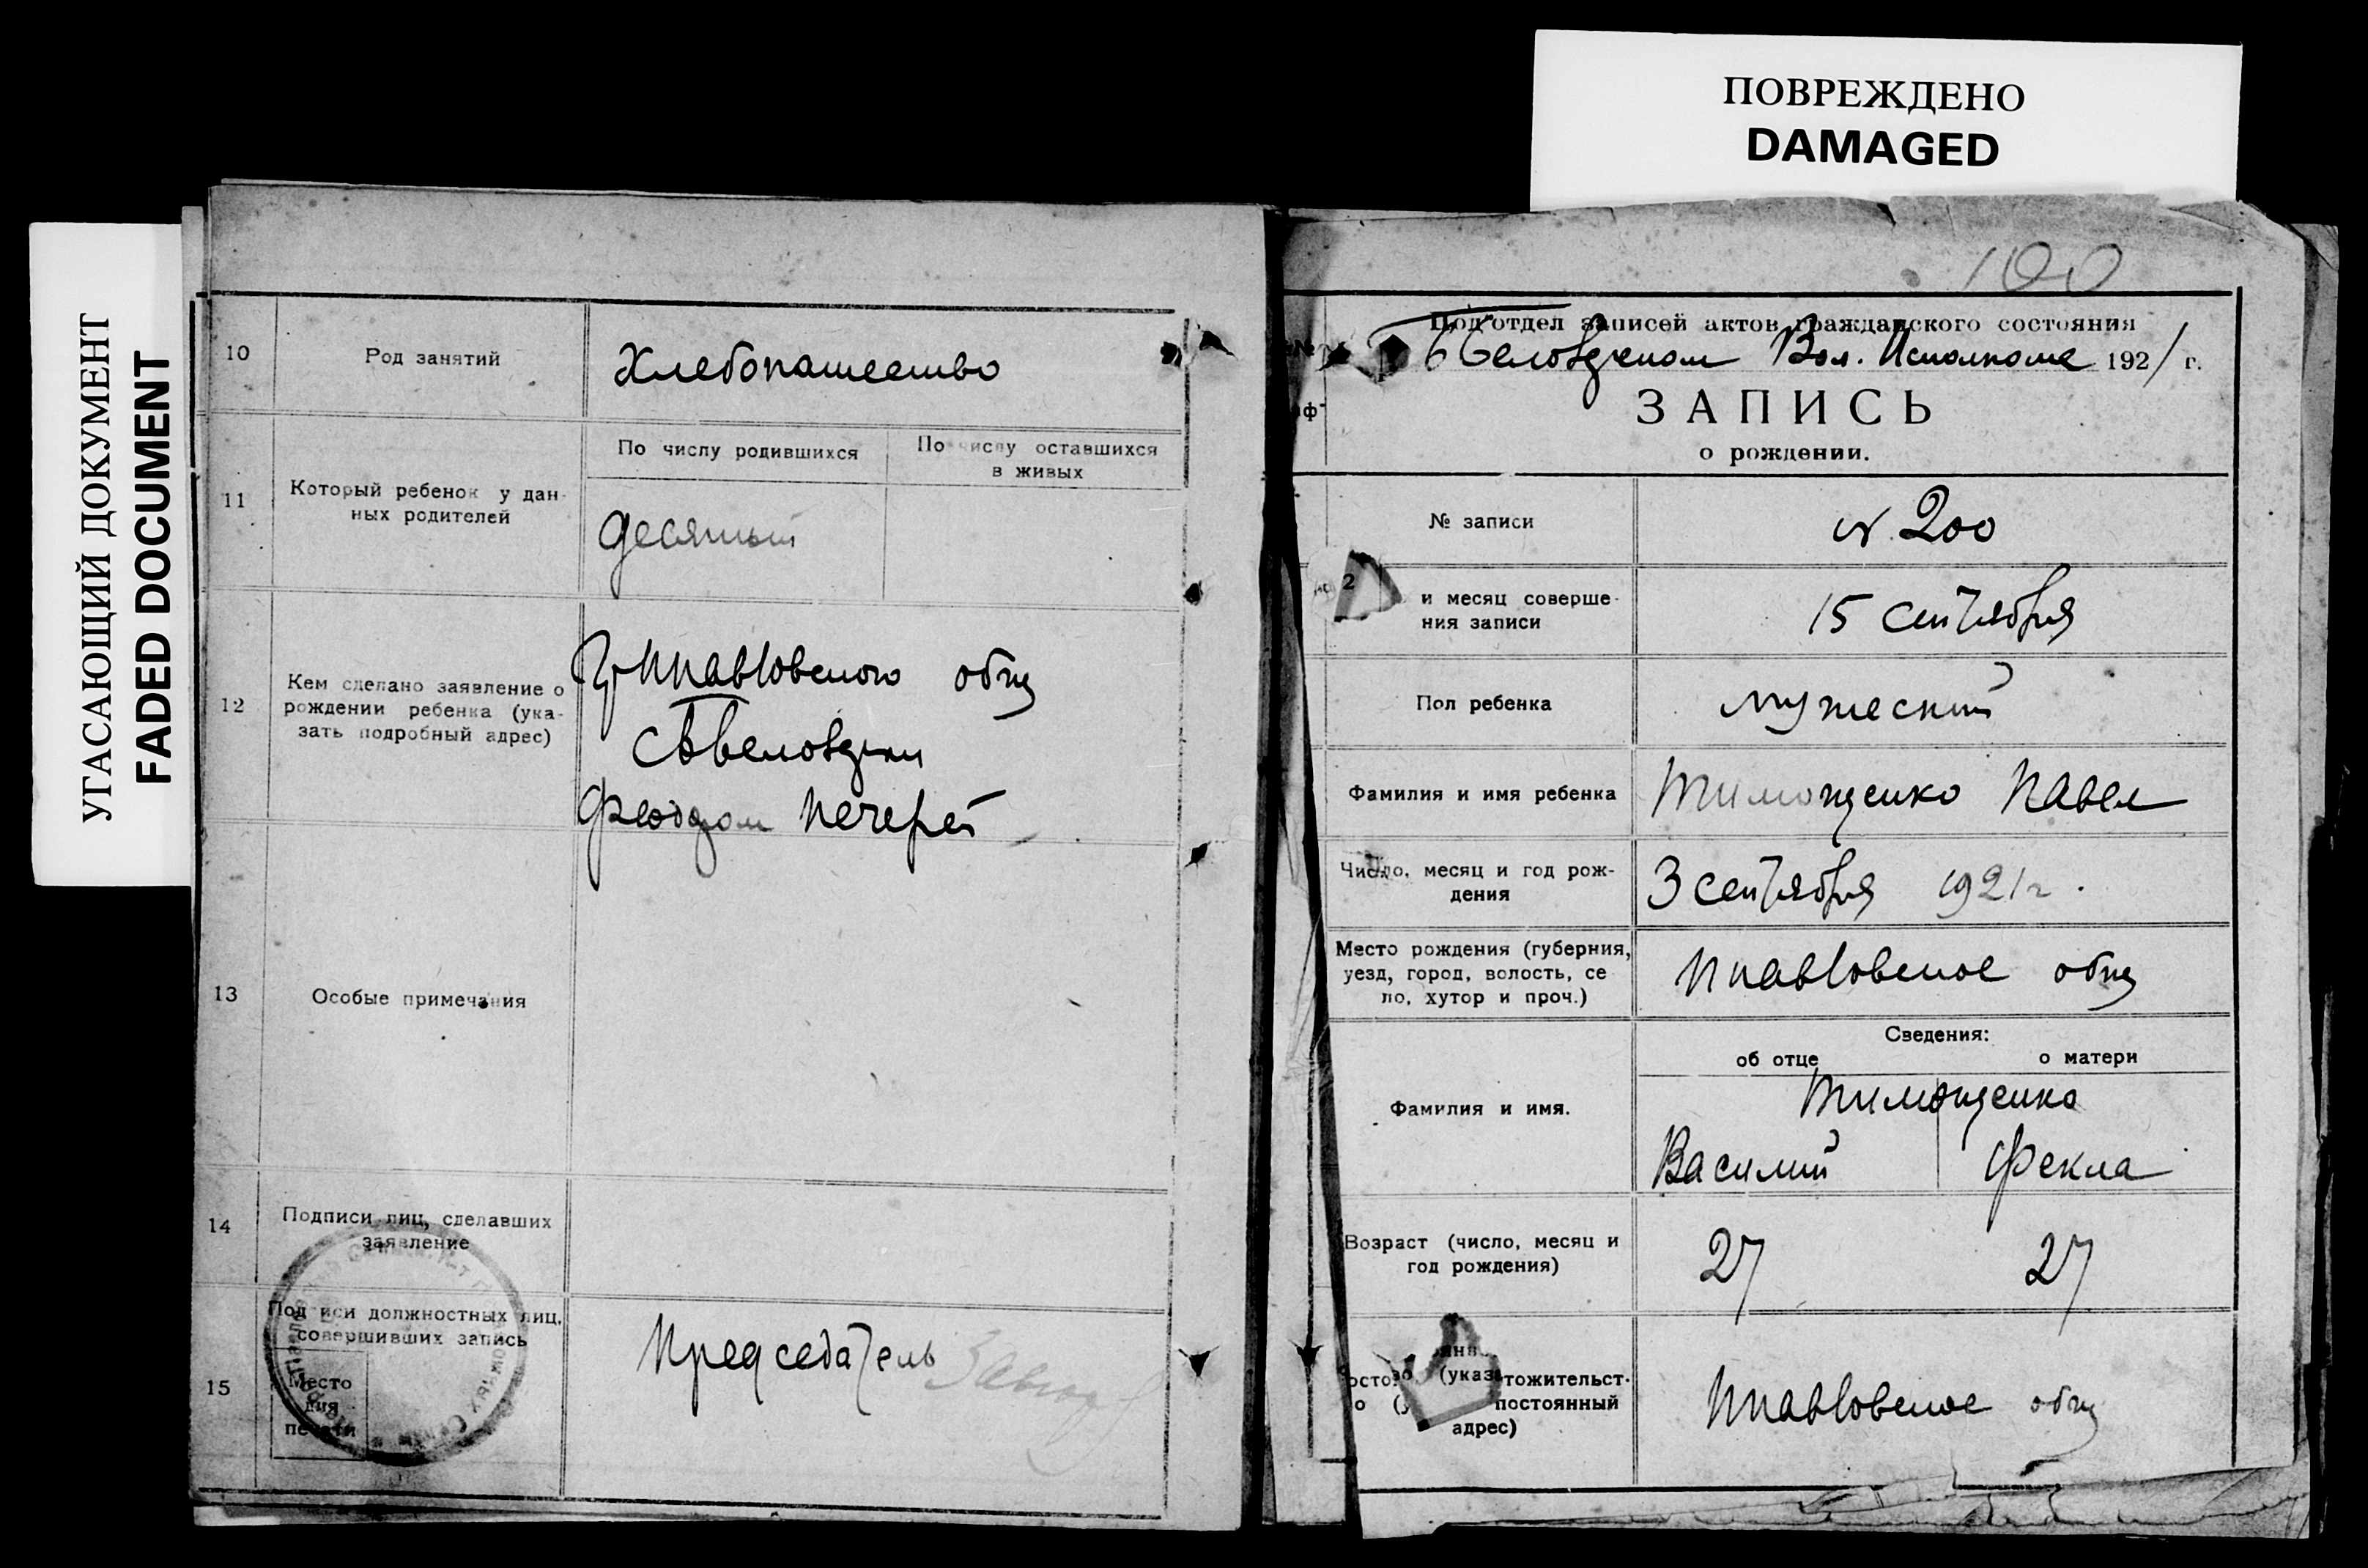 УГАСАЮЩИЙ ДОКУМЕНТ
FADED DOCUMENT
ПОВРЕЖДЕНО
DAMAGED
10
Род занятий
Хлебопашество
11
Который ребенок у дан-
ных родителей
По числу родившихся
По числу оставшихся
в живых
десятый
12
Кем сделано заявление о
рождении ребенка (ука-
зать подробный адрес)
общ
Печерей
13
Особые примечания
14
Подписи лиц, сделавших
заявление
15
Подписи должностных лиц,
совершивших запись
Место
для
печати
Председатель
100
Под'отдел записей актов гражданского состояния
Вол. Исполкоме 1921 г.
ЗАПИСЬ
о рождении.
№ записи
N 200
2
и месяц соверше-
ния записи
15 сентября
Пол ребенка
мужеский
Фамилия и имя ребенка
Тимощенко Павел
Число, месяц и год рож-
дения
3 сентября 1921 г.
Место рождения (губерния,
уезд, город, волость, се
ло, хутор и проч.)
общ
Сведения:
об отце
о матери
Фамилия и имя.
Тимощенко
Василий
Фекла
Возраст (число, месяц и
год рождения)
27
27
(указ
тожительст-
постоянный
адрес)
общ